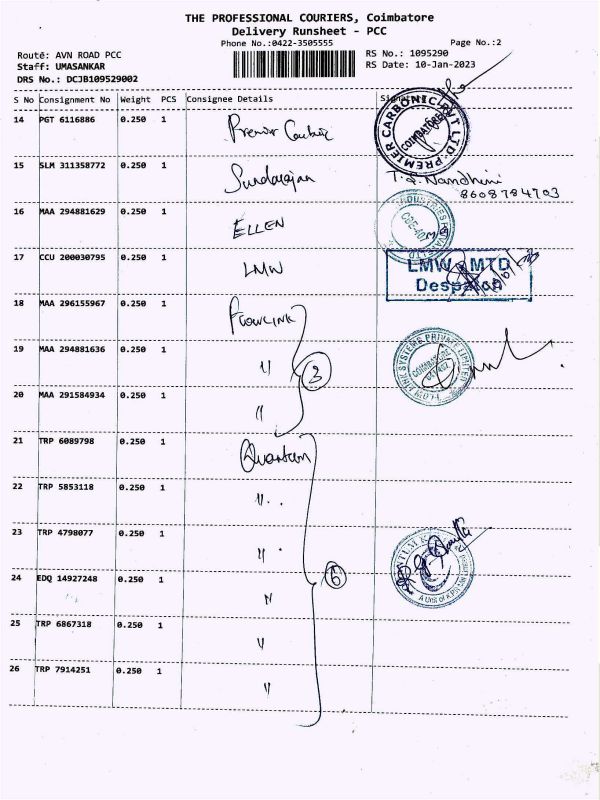 THE PROFESSIONAL COURIERS, Coimbatore
Delivery Runsheet - PCC
Phone No.:0422-3505555 Page No.:2
Route: AVN ROAD PCC RS No.: 1095290
Staff: UMASANKAR RS Date: 10-Jan-2023
DRS No.: DCJB109529002
S No Consignment No Weight PCS Consignee Details
14 PGT 6116886 0.250 1 Premier Carbonic
PREMIER CARBONIC PVT LTD
COIMBATORE
15 SLM 311358772 0.250 1 Sundarajan T.S. Nandhini
8608784703
16 MAA 294881629 0.250 1 ELLEN
17 CCU 200030795 0.250 1 LMW LMW MTD
Despatch
18 MAA 296155967 0.250 1 FLOWLINK
19 MAA 294881636 0.250 1 〃 3
FLOW LINK SYSTEMS PRIVATE LIMITED
COIMBATORE
20 MAA 291584934 0.250 1 〃
21 TRP 6089798 0.250 1 Quantum
22 TRP 5853118 0.250 1 〃
23 TRP 4798077 0.250 1 〃
24 EDQ 14927248 0.250 1 〃 6
25 TRP 6867318 0.250 1 〃
26 TRP 7914251 0.250 1 〃